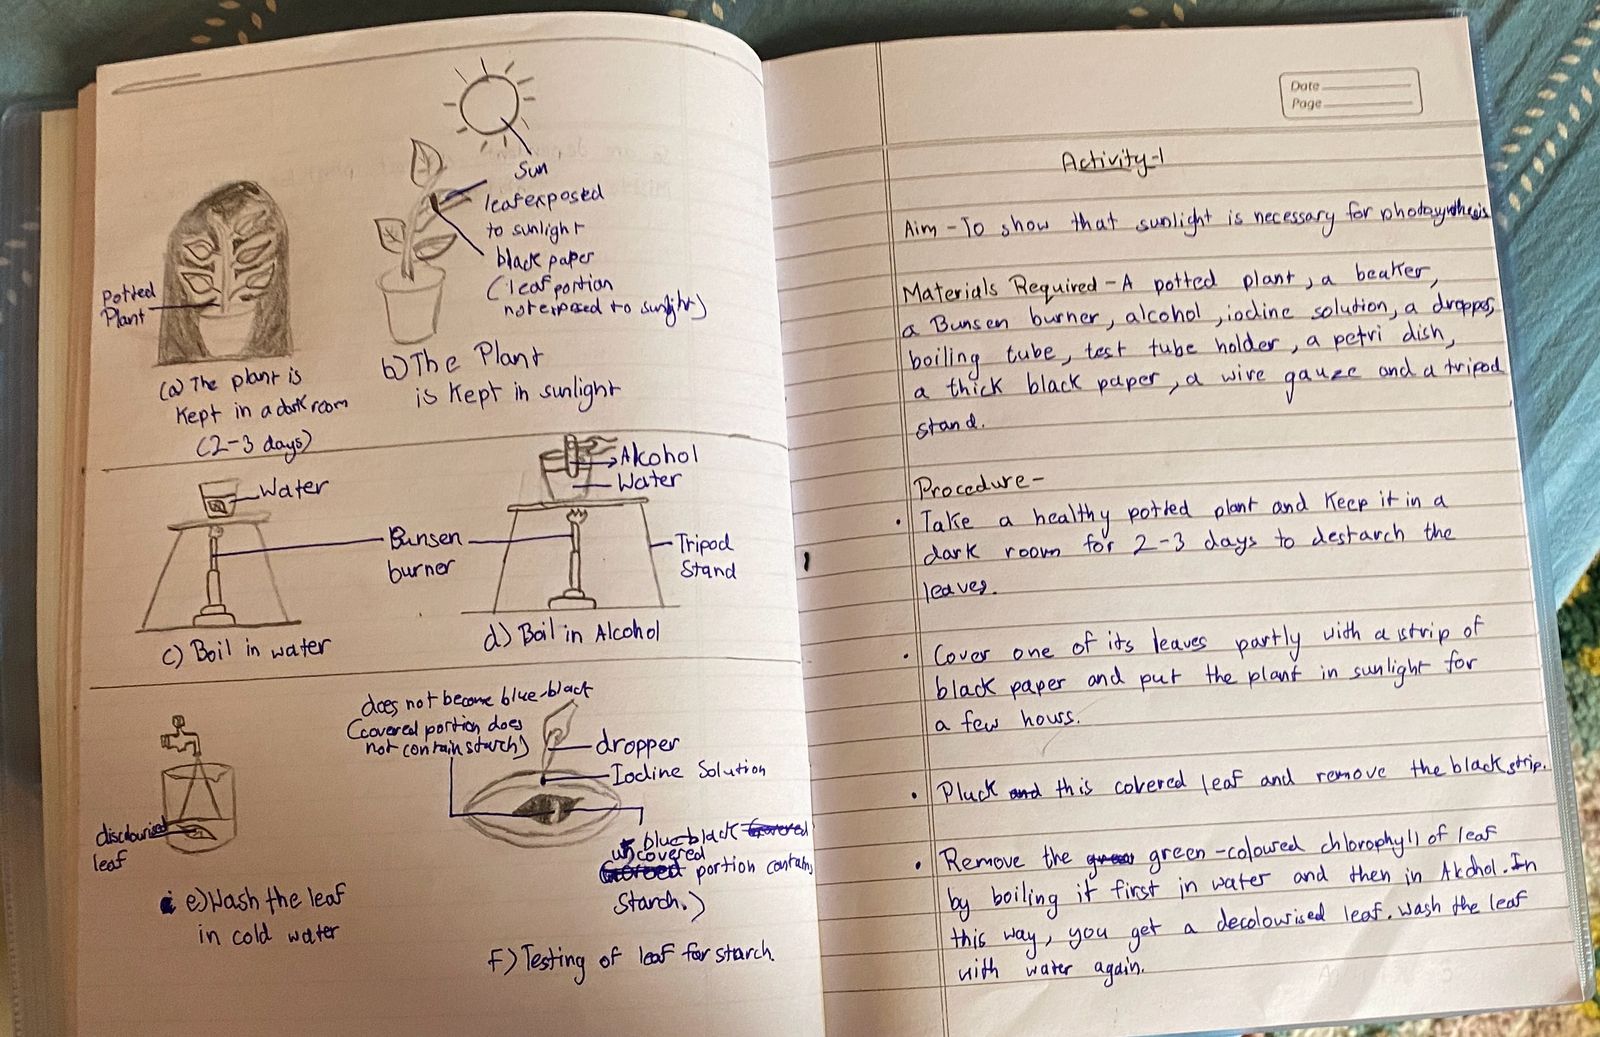 Sun
leaf exposed
to sunlight
black paper
(leaf portion
not exposed to sunlight)
Potted
Plant
(a) The plant is
Kept in a dark room
(2-3 days)
b) The Plant
is Kept in sunlight
Water
Alcohol
Water
Bunsen
burner
Tripod
Stand
c) Boil in water
d) Boil in Alcohol
does not become blue-black
(covered portion does
not contain starch)
dropper
Iodine Solution
discolourised
leaf
blue-black
uncovered
portion contains
Starch.)
e) Wash the leaf
in cold water
f) Testing of leaf for starch.
Date
Page
Activity-1
Aim - To show that sunlight is necessary for photosynthesis
Materials Required - A potted plant, a beaker,
a Bunsen burner, alcohol, iodine solution, a dropper,
boiling tube, test tube holder, a petri dish,
a thick black paper, a wire gauze and a tripod
stand.
Procedure -
• Take a healthy potted plant and Keep it in a
dark room for 2-3 days to destarch the
leaves.
• Cover one of its leaves partly with a strip of
black paper and put the plant in sunlight for
a few hours.
• Pluck and this covered leaf and remove the black strip.
• Remove the green-coloured chlorophyll of leaf
by boiling it first in water and then in Alcohol. In
this way, you get a decolourised leaf. Wash the leaf
with water again.